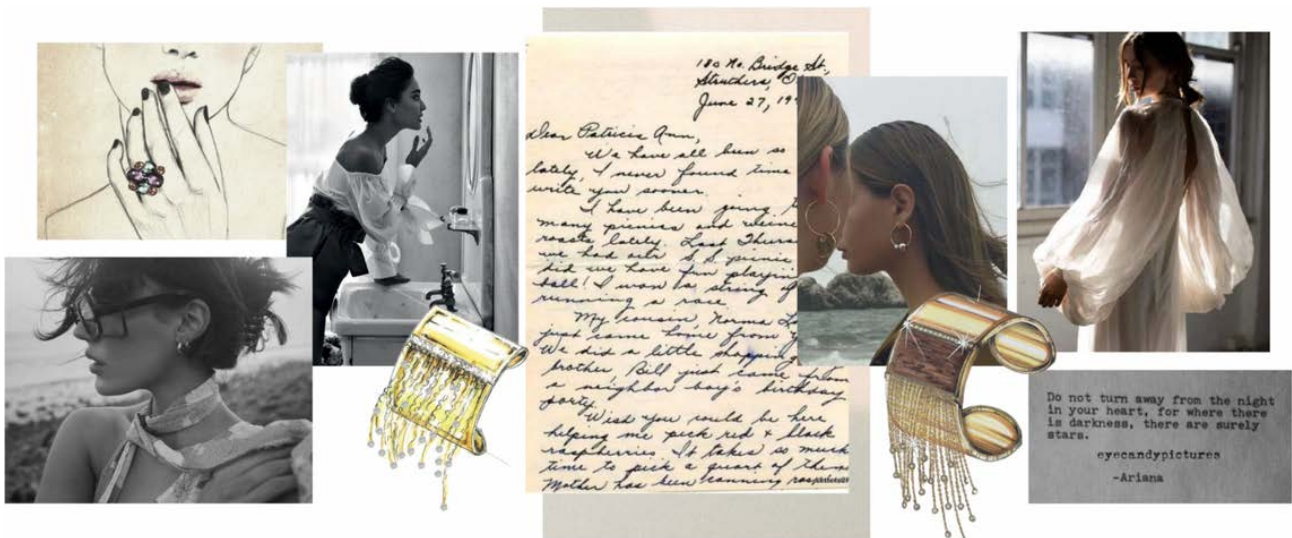 180 No. Bridge St.,
Struthers, O
June 27, 19
Dear Patricia Ann,
We have all been so
lately, I never found time
write you sooner.
I have been going t
many picnics and
roasts lately. Last Thurs
we had our S.S. picnic
did we have fun playin
ball! I won a string of
running a race.
My cousin, Norma L
just came home from
We did a little shopping
brother Bill just came from
a neighbor boy's birthday
party.
Wish you could be here
helping me pick red + black
raspberries. It takes so much
time to pick a quart of them
Mother has been canning rasp
Do not turn away from the night
in your heart, for where there
is darkness, there are surely
stars.
eyecandypictures
-Ariana